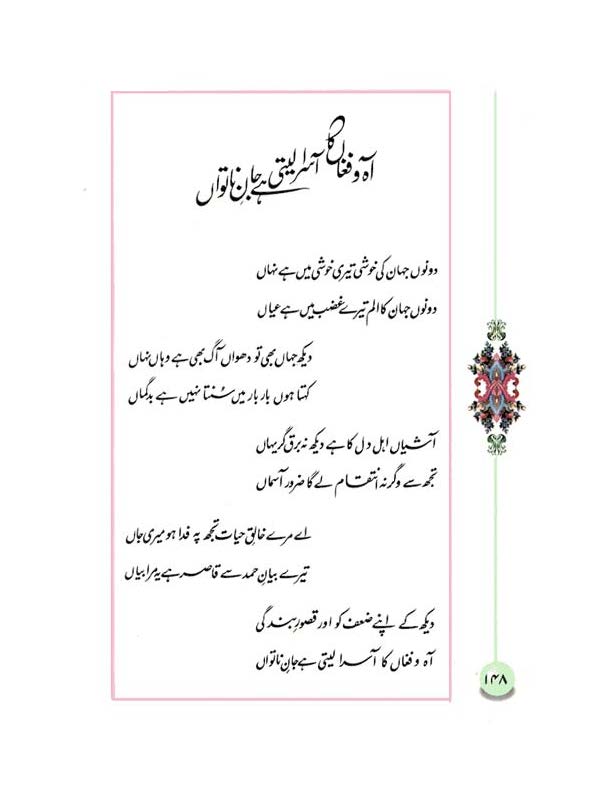 آہ و فغاں کا آسرا لیتی ہے جانِ ناتواں
دونوں جہان کی خوشی تیری خوشی میں ہے نہاں
دونوں جہان کا الم تیرے غضب میں ہے عیاں
دیکھ جہاں بھی تو دھواں آگ بھی ہے وہاں نہاں
کہتا ہوں بار بار میں سُنتا نہیں ہے بدگماں
آشیاں اہل دل کا ہے دیکھ نہ برق گر یہاں
تجھ سے وگرنہ انتقام لے گا ضرور آسماں
اے مرے خالقِ حیات تجھ پہ فدا ہو میری جاں
تیرے بیانِ حمد سے قاصر ہے یہ مرا بیاں
دیکھ کے اپنے ضعف کو اور قصورِ بندگی
آہ و فغاں کا آسرا لیتی ہے جانِ ناتواں
۱۴۸